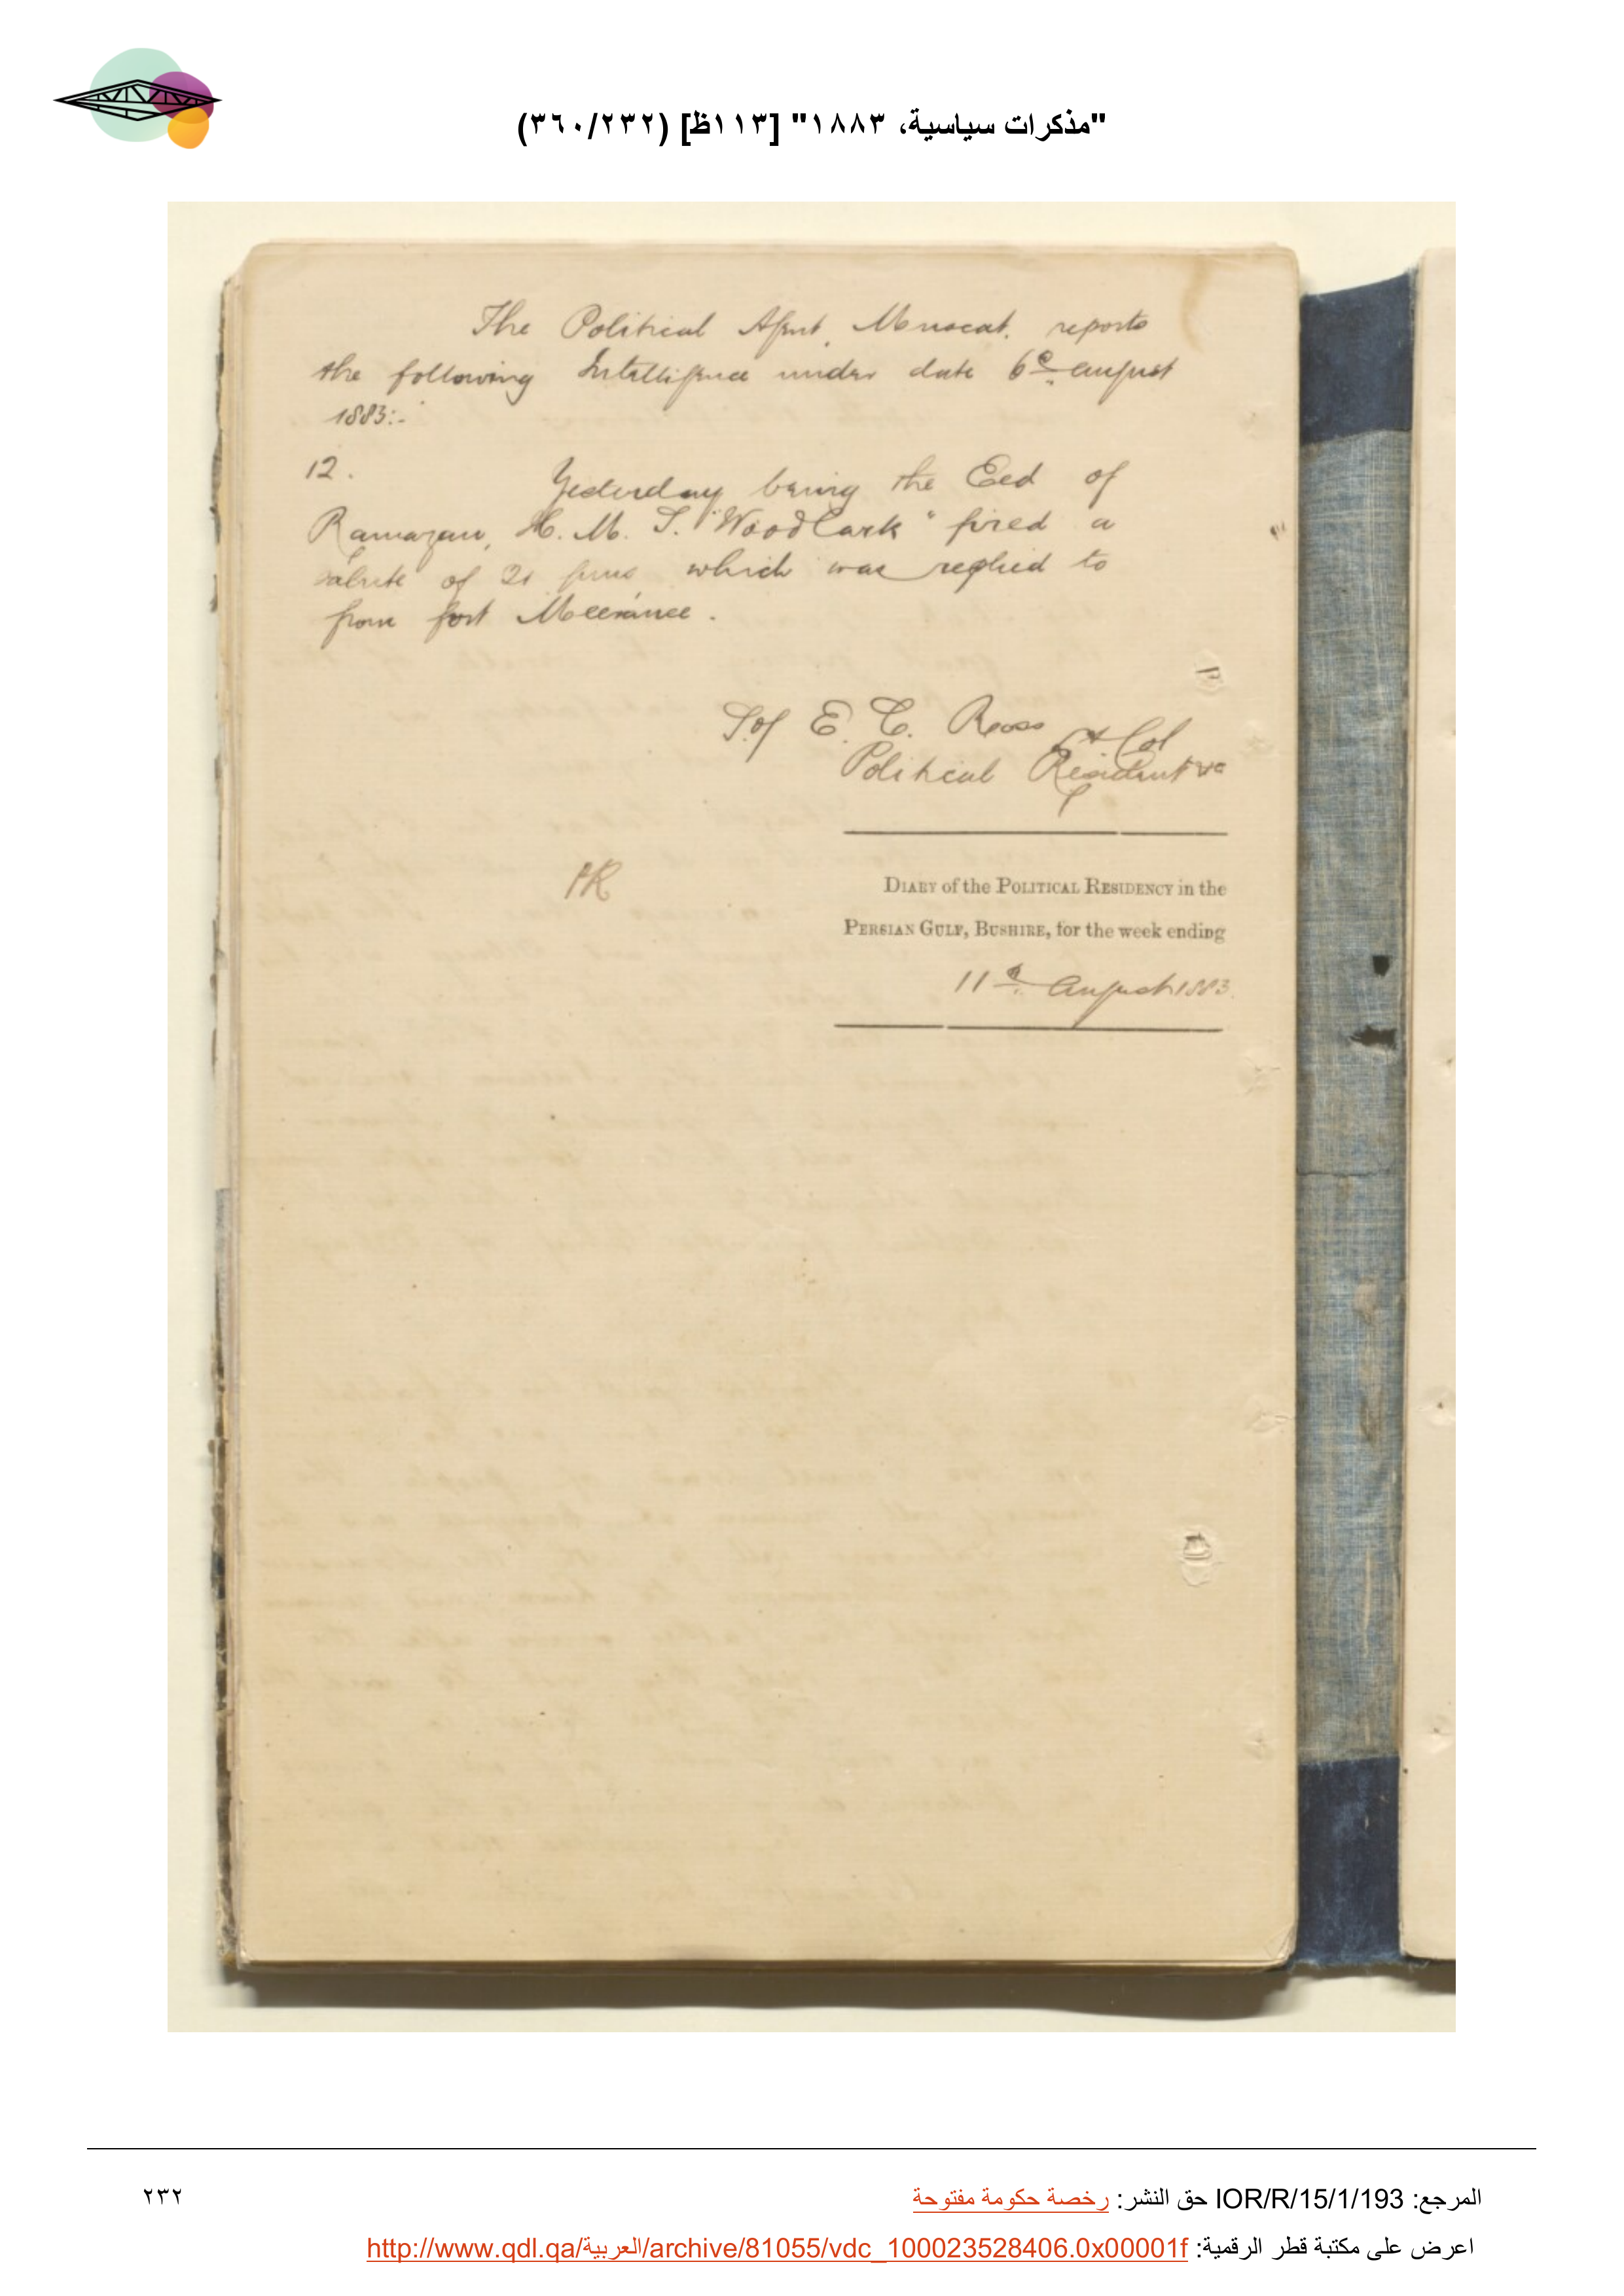 "مذكرات سياسية، ١٨٨٣" [١١٣ظ] (٣٦٠/٢٣٢)
The Political Agent, Muscat. reports
the following Intelligence under date 6th August
1883:-
12. Yesterday being the Eed of
Ramazan, H. M. S. "Woodlark" fired a
salute of 21 guns, which was replied to
from fort Meeranee.
E. C. Ross Lt Col
Political Resident &c
DIARY of the POLITICAL RESIDENCY in the
PERSIAN GULF, BUSHIRE, for the week ending
11th August 1883.
المرجع: IOR/R/15/1/193 حق النشر: رخصة حكومة مفتوحة
٢٣٢
اعرض على مكتبة قطر الرقمية: http://www.qdl.qa/العربية/archive/81055/vdc_100023528406.0x00001f